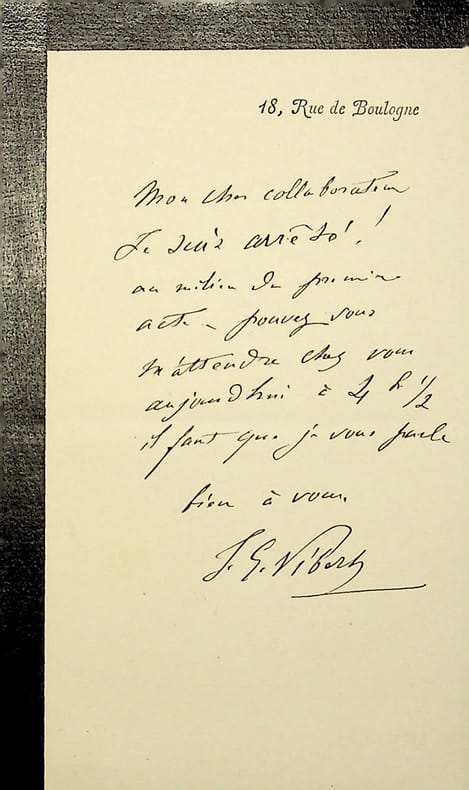 18, Rue de Boulogne
Mon cher collaborateur
Je suis arrêté!
au milieu du premier
acte – pouvez vous
m'attendre chez vous
aujourdhui à 4 h 1/2
il faut que je vous parle
bien à vous.
J. G. Vibert